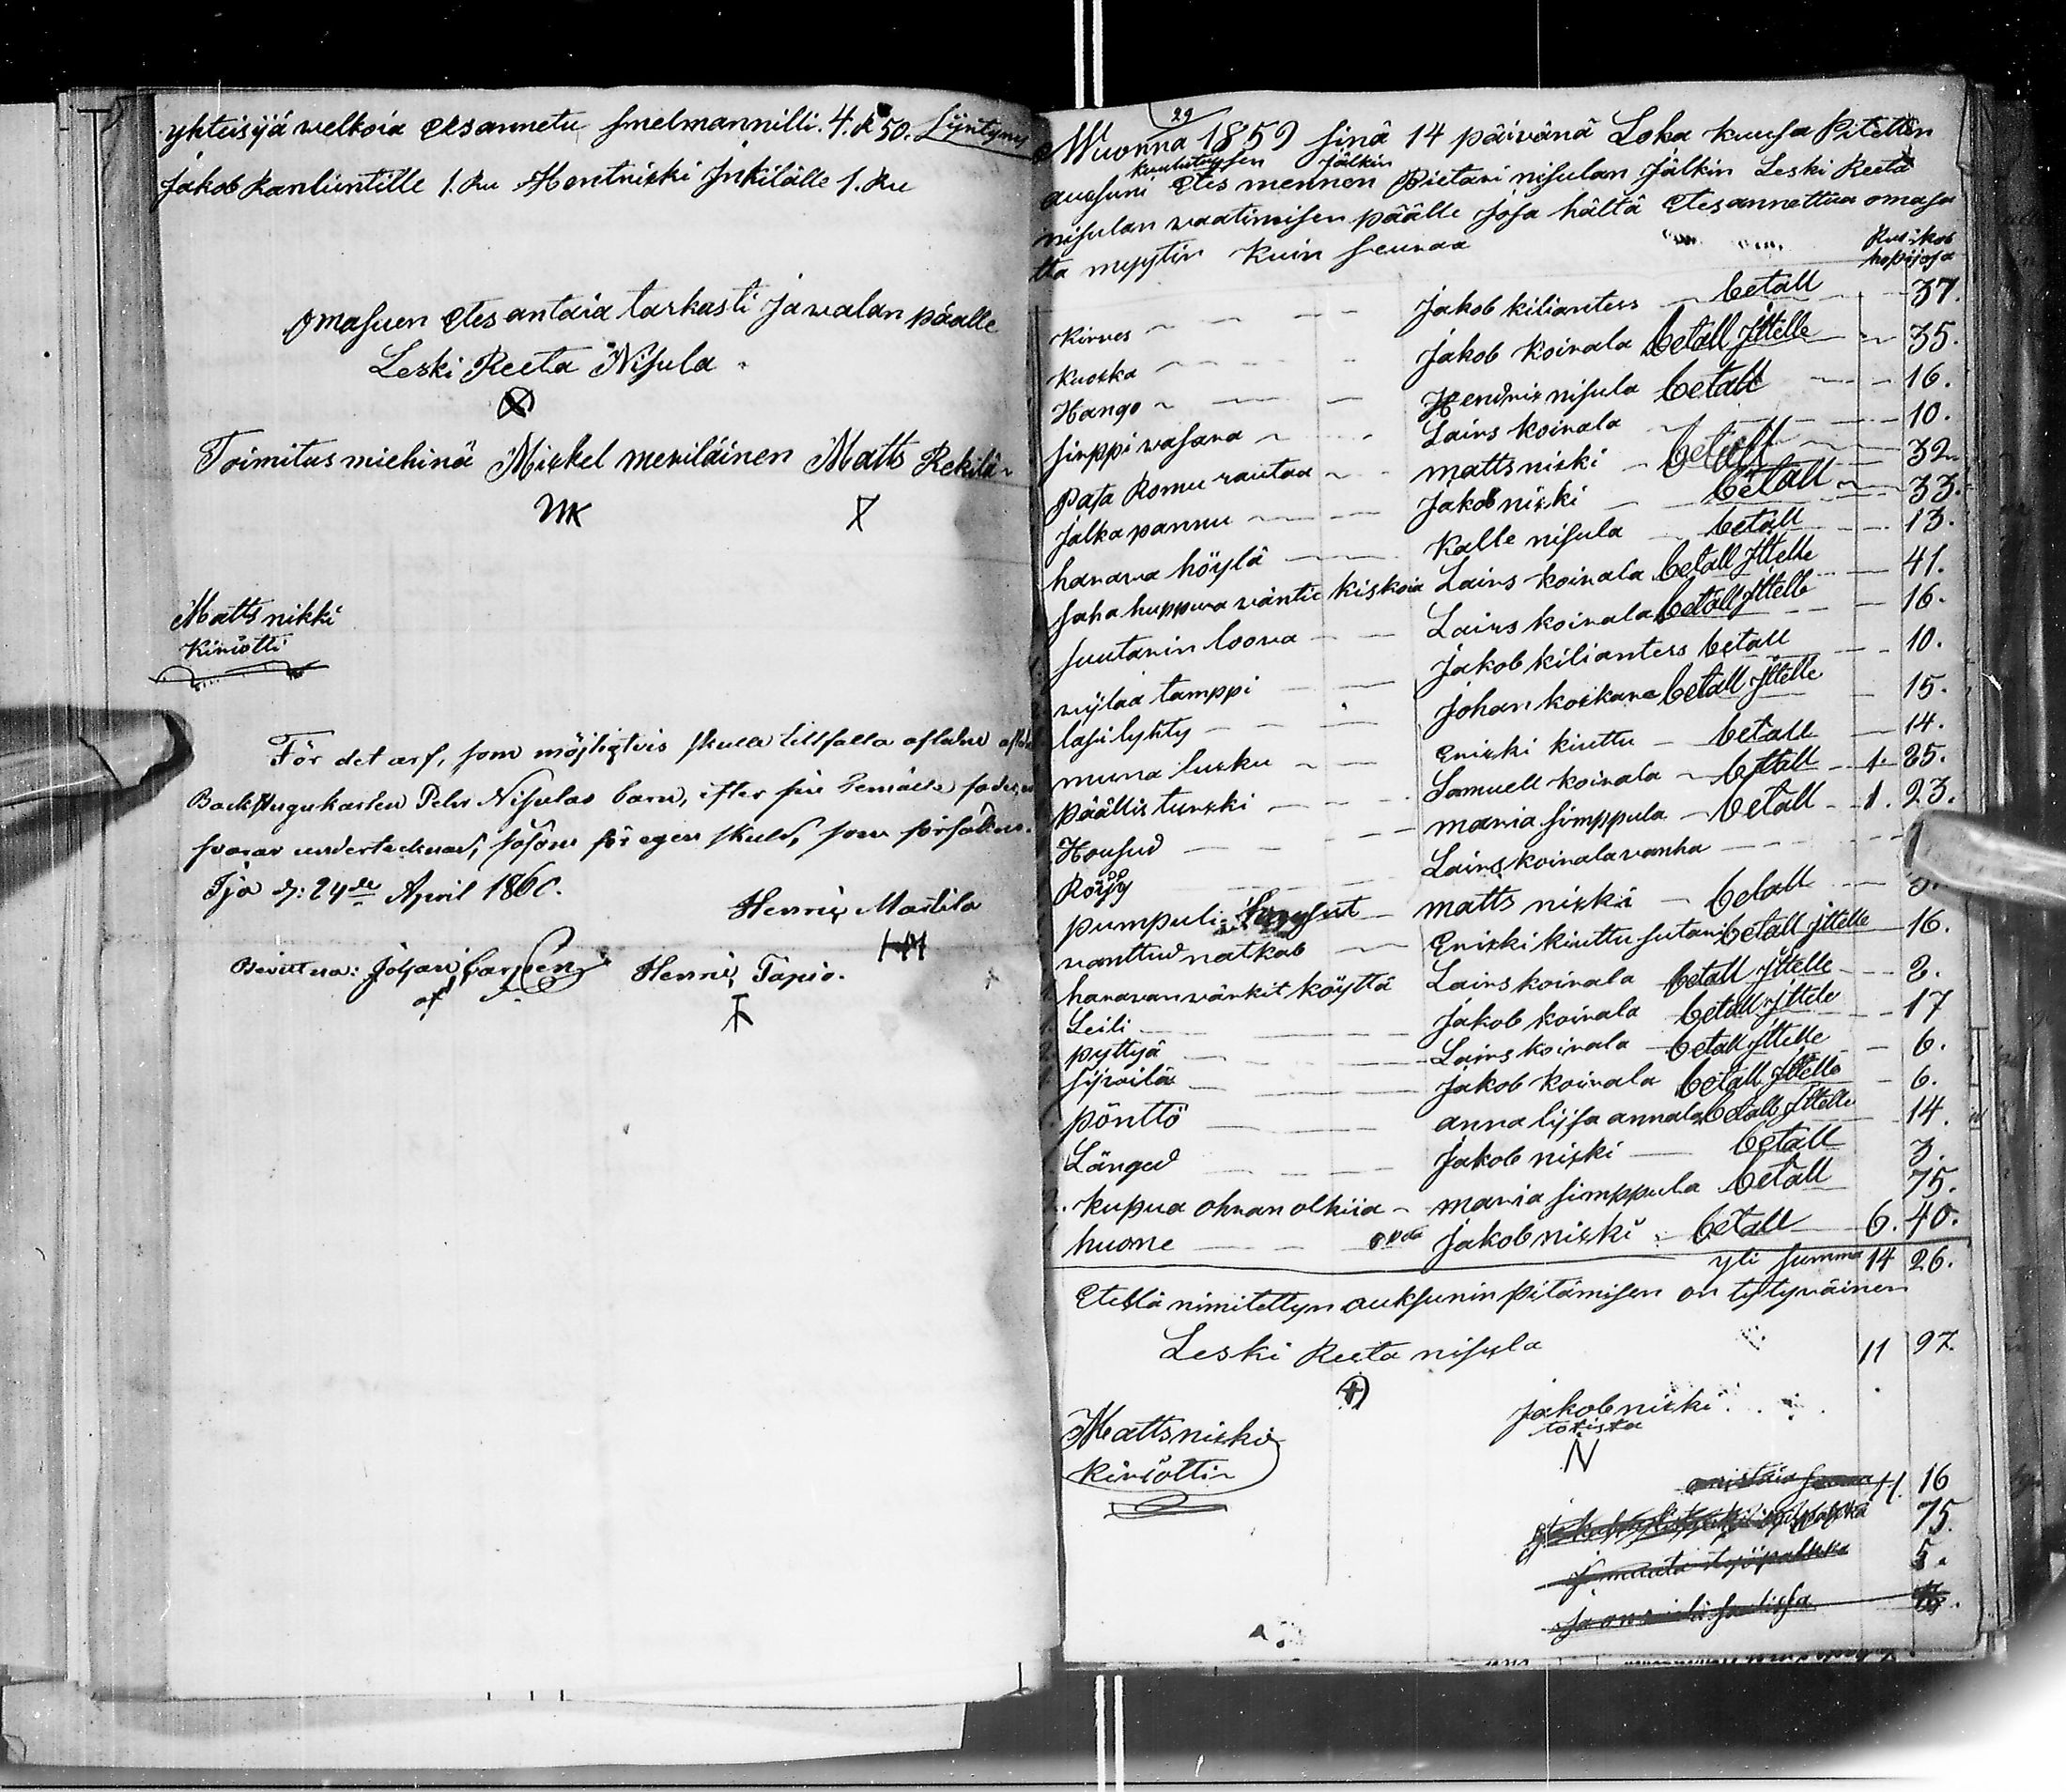 yhteisijä welkoia etesannetu smelmannilli. 4. R 50. Lyntyny
Jakob kanlüntille 1. Ru Hentriski Jnkilälle 1. Ru
Omasuen etes antaia tarkasti ja walan päälle
Leski Reeta Nisula
Toimitus miehinä Mixkel meriläinen Matts Rekilä
MK X
Matts nikki
Kiriotti
För det arf, som möjligtvis skulle tillfalla aflidne
Backstugukarlen Pehr Nisulas barn, efter sin fader,
svarar undertecknad, såsom för egen skuld, som försäkras.
Ijo d: 24de April 1860.
Henric Mattila
HM
Bevittna: Johan Henric Tapio.
29
Wuonna 1859 sinä 14 päivänä Loka kuusa Pitettin
kuulutuxsen jälkin
auxsuni etes mennen Pietari nisulan jälkin Leski Reeta
nisulan waatimisen päälle josa hältä etesannettua omasu
tta myytin kuin seuraa
Ru kob
hopijosa
Kirves Jakob kilianters betall 37.
Kuokka Jakob koivala betall Jttelle 35.
Hango Hendrix nisula betall 16.
sirppi wasara Lairs koivala 10.
pata Romu rautaa matts niski betall 32
jalka pannu Jakob niski betall 33.
harava höylä Kalle nisula betall 13.
saha huppura väntie kiskoia Lairs koivala betall Jttelle 41.
suutarin loova Lairs koivala betall Jttelle 16.
vylaa tamppi Jakob kilianters betall 10.
lasi lyhty Johan koskara betall Jttelle 15.
muna lusku Eriski kiuttu betall 14.
päällis turski Samuell koivala betall 1. 25.
Housud maria simppula betall 1. 23.
Röijy Lairs koivala vanha
pumpuli matts niski betall
vanttud natkab Eriski kiuttu sutari betall Jttelle 16.
haravan värkit köyttä Lairs koivala betall Jttelle 2.
Leili Jakob koivala betall Jttele 17
pyttyä Lairs koivala betall Jttelle 6.
syvvilä Jakob koivala betall Jttelle 6.
pönttö anna lijsa annala betall Jttelle 14.
Länged Jakob niski betall 3.
kupua ohran olkiia maria simppula betall 75.
huone Jakob niski betall 6. 40.
yli summa 14 26.
Etellä nimitettyn auksunin pitämisen on tytyväinen
Leski Reeta nisula 11 97.
Matts niski
Kiriotti
Jakob niski
totista
N
16
75.
5.